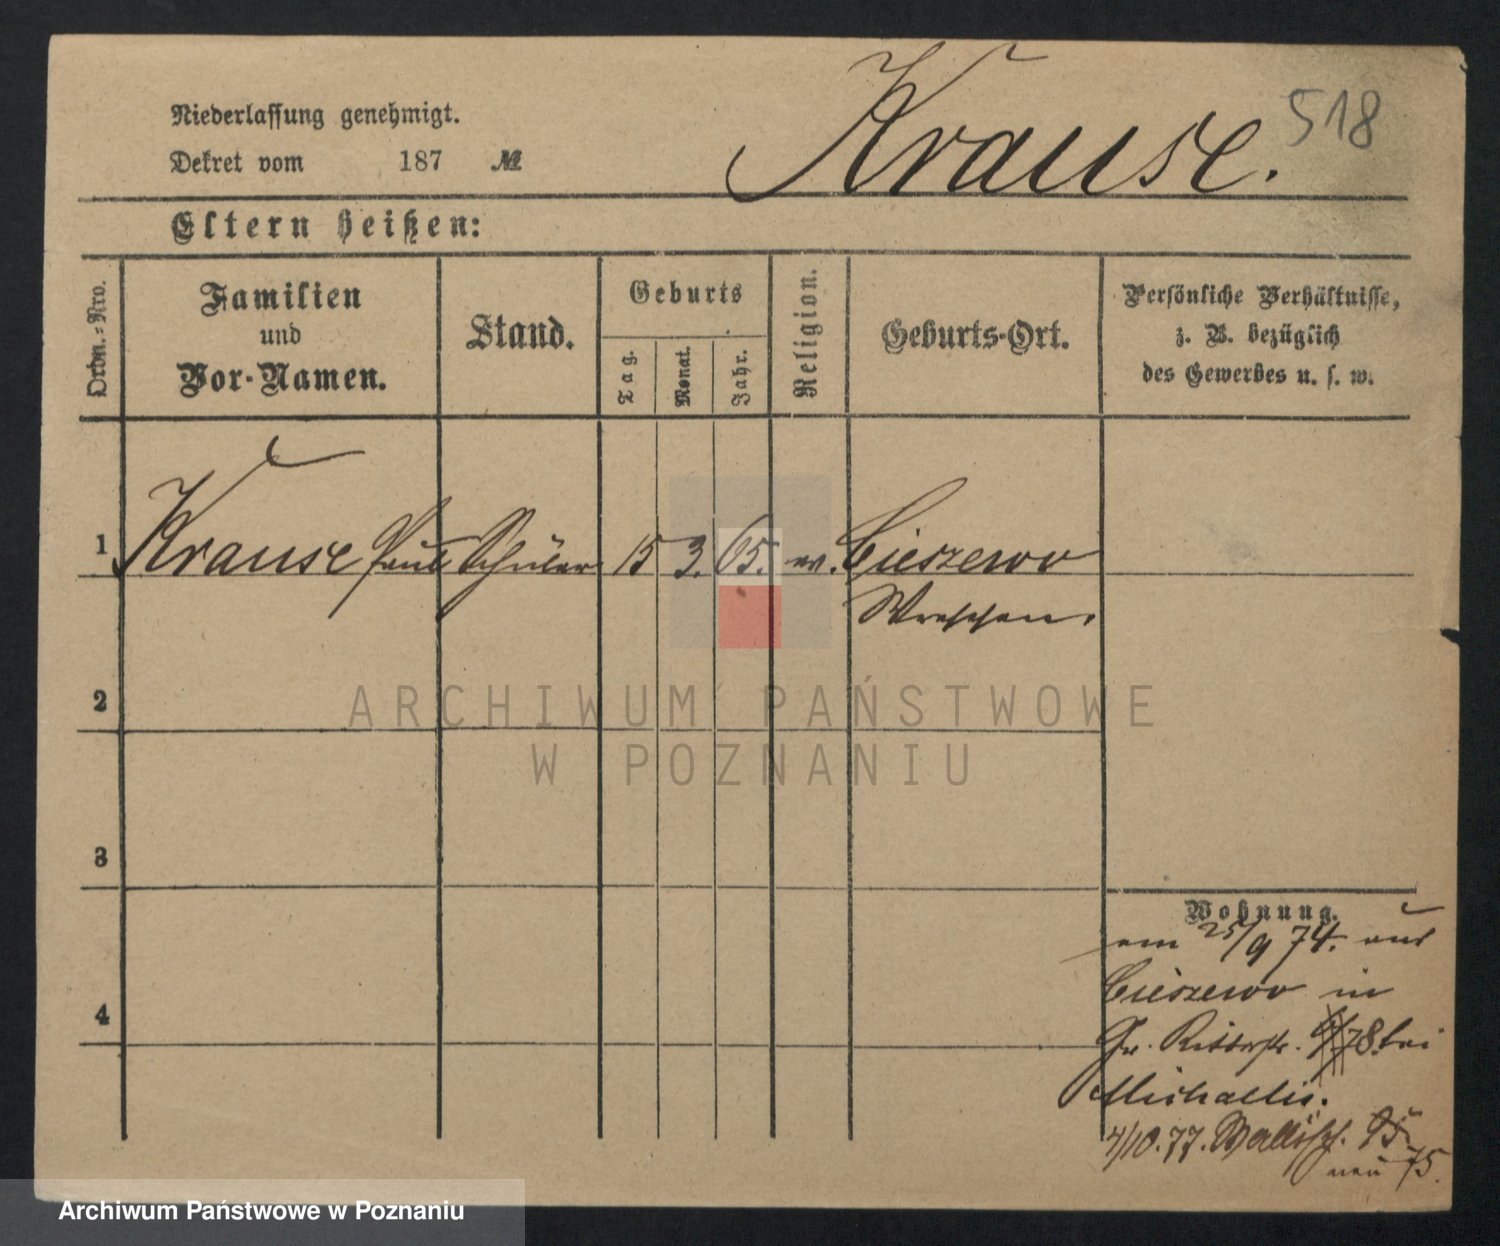 Krause. 518
Niederlassung genehmigt.
Dekret vom 187 №
Eltern heißen:
Ordn.-Nro.
Familien
und
Vor-Namen.
Stand.
Geburts
Tag.
Monat.
Jahr.
Religion.
Geburts-Ort.
Persönliche Verhältnisse,
z. B. bezüglich
des Gewerbes u. s. w.
1 Krause Paul Schüler 15 3. 65. ev. Cieszewo
Wreschen.
2
ARCHIWUM PAŃSTWOWE
W POZNANIU
3
4
Wohnung.
am 25/9 74. aus
Cieszewo in
Gr. Ritterstr. 78. bei
Michaelis.
4/10. 77. Wallisch.
neu 75.
Archiwum Państwowe w Poznaniu